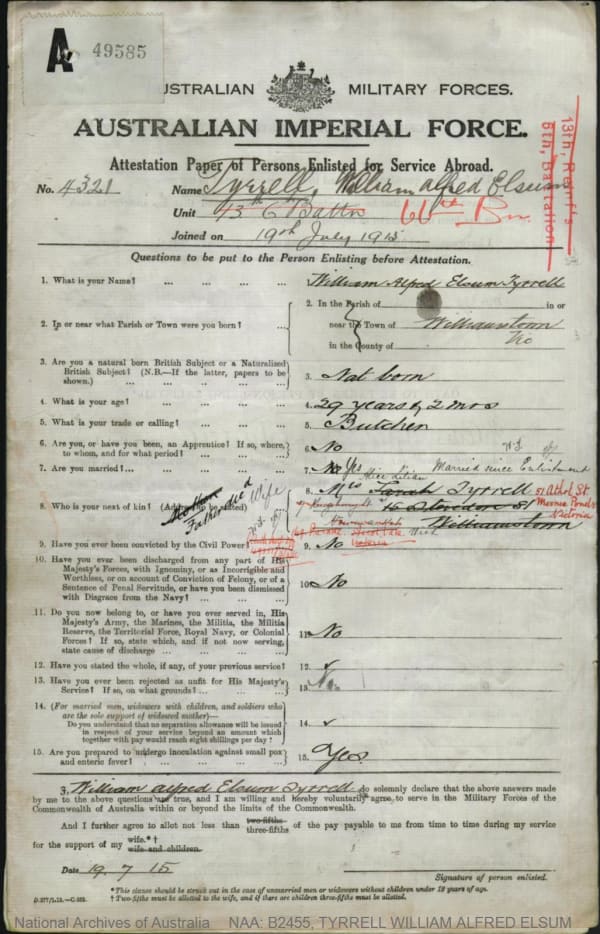 A
49585
AUSTRALIAN MILITARY FORCES.
AUSTRALIAN IMPERIAL FORCE.
Attestation Paper of Persons Enlisted for Service Abroad.
13th. Reinf's
6th. Battalion
No. 4321 Name Tyrrell, William Alfred Elsum
Unit
Joined on 19th July 1915
Questions to be put to the Person Enlisting before Attestation.
1. What is your Name? ... ... ... ... William Alfred Elsum Tyrrell
2. In or near what Parish or Town were you born? ...
2. In the Parish of in or
near the Town of Williamstown
in the County of Vic
3. Are you a natural born British Subject or a Naturalized
British Subject? (N.B.—If the latter, papers to be
shown.) ... ... ... ... ...
3. Nat born
4. What is your age? ... ... ... ... 4. 29 years & 2 mos
5. What is your trade or calling? ... ... ... 5. Butcher
6. Are you, or have you been, an Apprentice? If so, where,
to whom, and for what period? ... ... ...
6. No
7. Are you married? ... ... ... ... 7. No Yes Married since Enlistment
8. Who is your next of kin? (Address to be stated)
Mother Wife
Father dec'd
8. Mrs Sarah Tyrrell
51 Athol St
Moonee Ponds
Victoria
Williamstown
9. Have you ever been convicted by the Civil Power? 9. No
10. Have you ever been discharged from any part of His
Majesty's Forces, with Ignominy, or as Incorrigible and
Worthless, or on account of Conviction of Felony, or of a
Sentence of Penal Servitude, or have you been dismissed
with Disgrace from the Navy? ... ... ...
10. No
11. Do you now belong to, or have you ever served in, His
Majesty's Army, the Marines, the Militia, the Militia
Reserve, the Territorial Force, Royal Navy, or Colonial
Forces? If so, state which, and if not now serving,
state cause of discharge ... ... ... ...
11. No
12. Have you stated the whole, if any, of your previous service? 12.
13. Have you ever been rejected as unfit for His Majesty's
Service? If so, on what grounds? ... ... ...
13. No
14. (For married men, widowers with children, and soldiers who
are the sole support of widowed mother)—
Do you understand that no separation allowance will be issued
in respect of your service beyond an amount which
together with pay would reach eight shillings per day?
14. ✓
15. Are you prepared to undergo inoculation against small pox
and enteric fever? ... ... ... ...
15. Yes
I, William Alfred Elsum Tyrrell do solemnly declare that the above answers made
by me to the above questions are true, and I am willing and hereby voluntarily agree to serve in the Military Forces of the
Commonwealth of Australia within or beyond the limits of the Commonwealth.
And I further agree to allot not less than two-fifths three-fifths of the pay payable to me from time to time during my service
for the support of my wife.*†
wife and children.
Date 19.7.15
Signature of person enlisted.
*This clause should be struck out in the case of unmarried men or widowers without children under 18 years of age.
† Two-fifths must be allotted to the wife, and if there are children three-fifths must be allotted.
National Archives of Australia NAA: B2455, TYRRELL WILLIAM ALFRED ELSUM